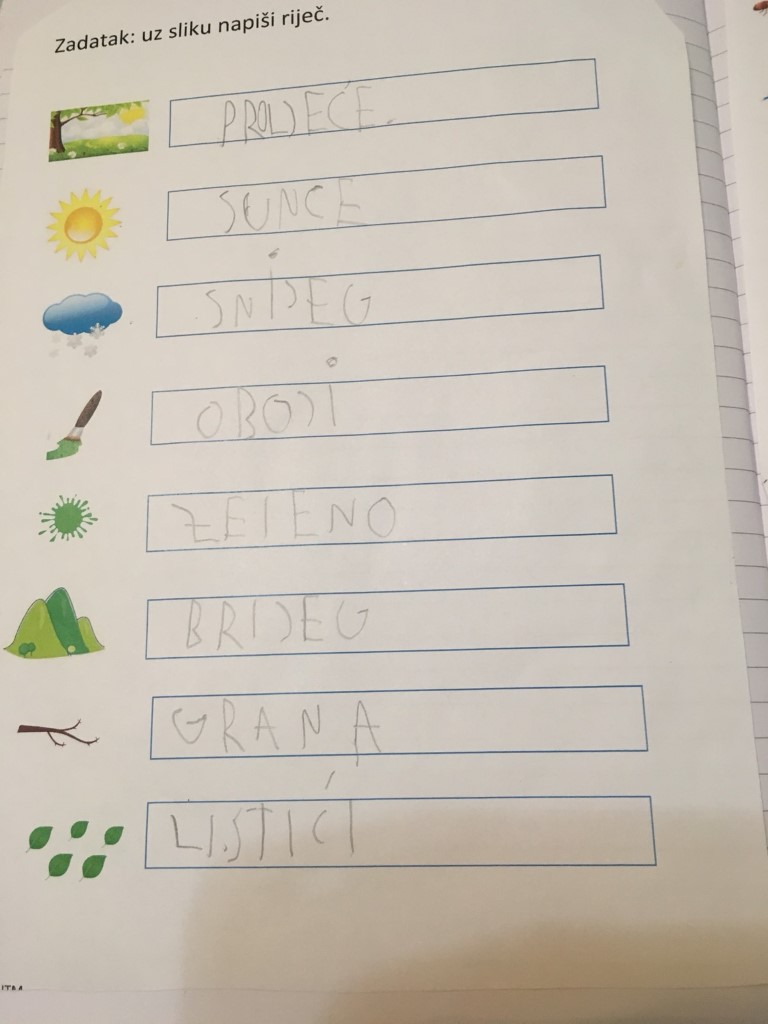 Zadatak: uz sliku napiši riječ.
PROLJEĆE.
SUNCE
SNIJEG
OBOJI
ZELENO
BRIJEG
GRANA
LISTIĆI